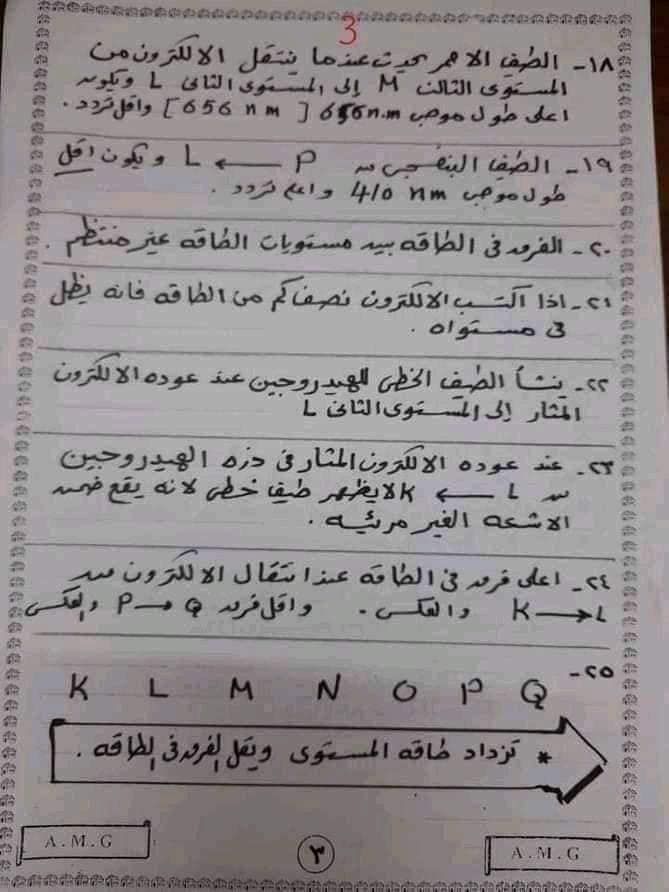 3
١٨- الطيف الاحمر يحدث عندما ينتقل الالكترون من
المستوى الثالث M إلى المستوى الثانى L ويكون
اعلى طول موجى 656n.m [656 nm] واقل تردد.
١٩- الطيف البنفسجى من P ← L ويكون اقل
طول موجى 410 nm واعلى تردد.
٢٠- الفرق فى الطاقه بين مستويات الطاقه غير منتظم.
٢١- اذا اكتسب الالكترون نصف كم من الطاقه فانه يظل
فى مستواه.
٢٢- ينشأ الطيف الخطى للهيدروجين عند عوده الالكترون
المثار إلى المستوى الثانى L
٢٣- عند عوده الالكترون المثار فى ذره الهيدروجين
من L ← K لايظهر طيف خطى لانه يقع ضمن
الاشعه الغير مرئيه.
٢٤- اعلى فرق فى الطاقه عند انتقال الالكترون من
K → L والعكس. واقل فرق P → Q والعكس
٢٥-
K L M N O P Q
* تزداد طاقه المستوى ويقل الفرق فى الطاقه.
A.M.G
٣
A.M.G